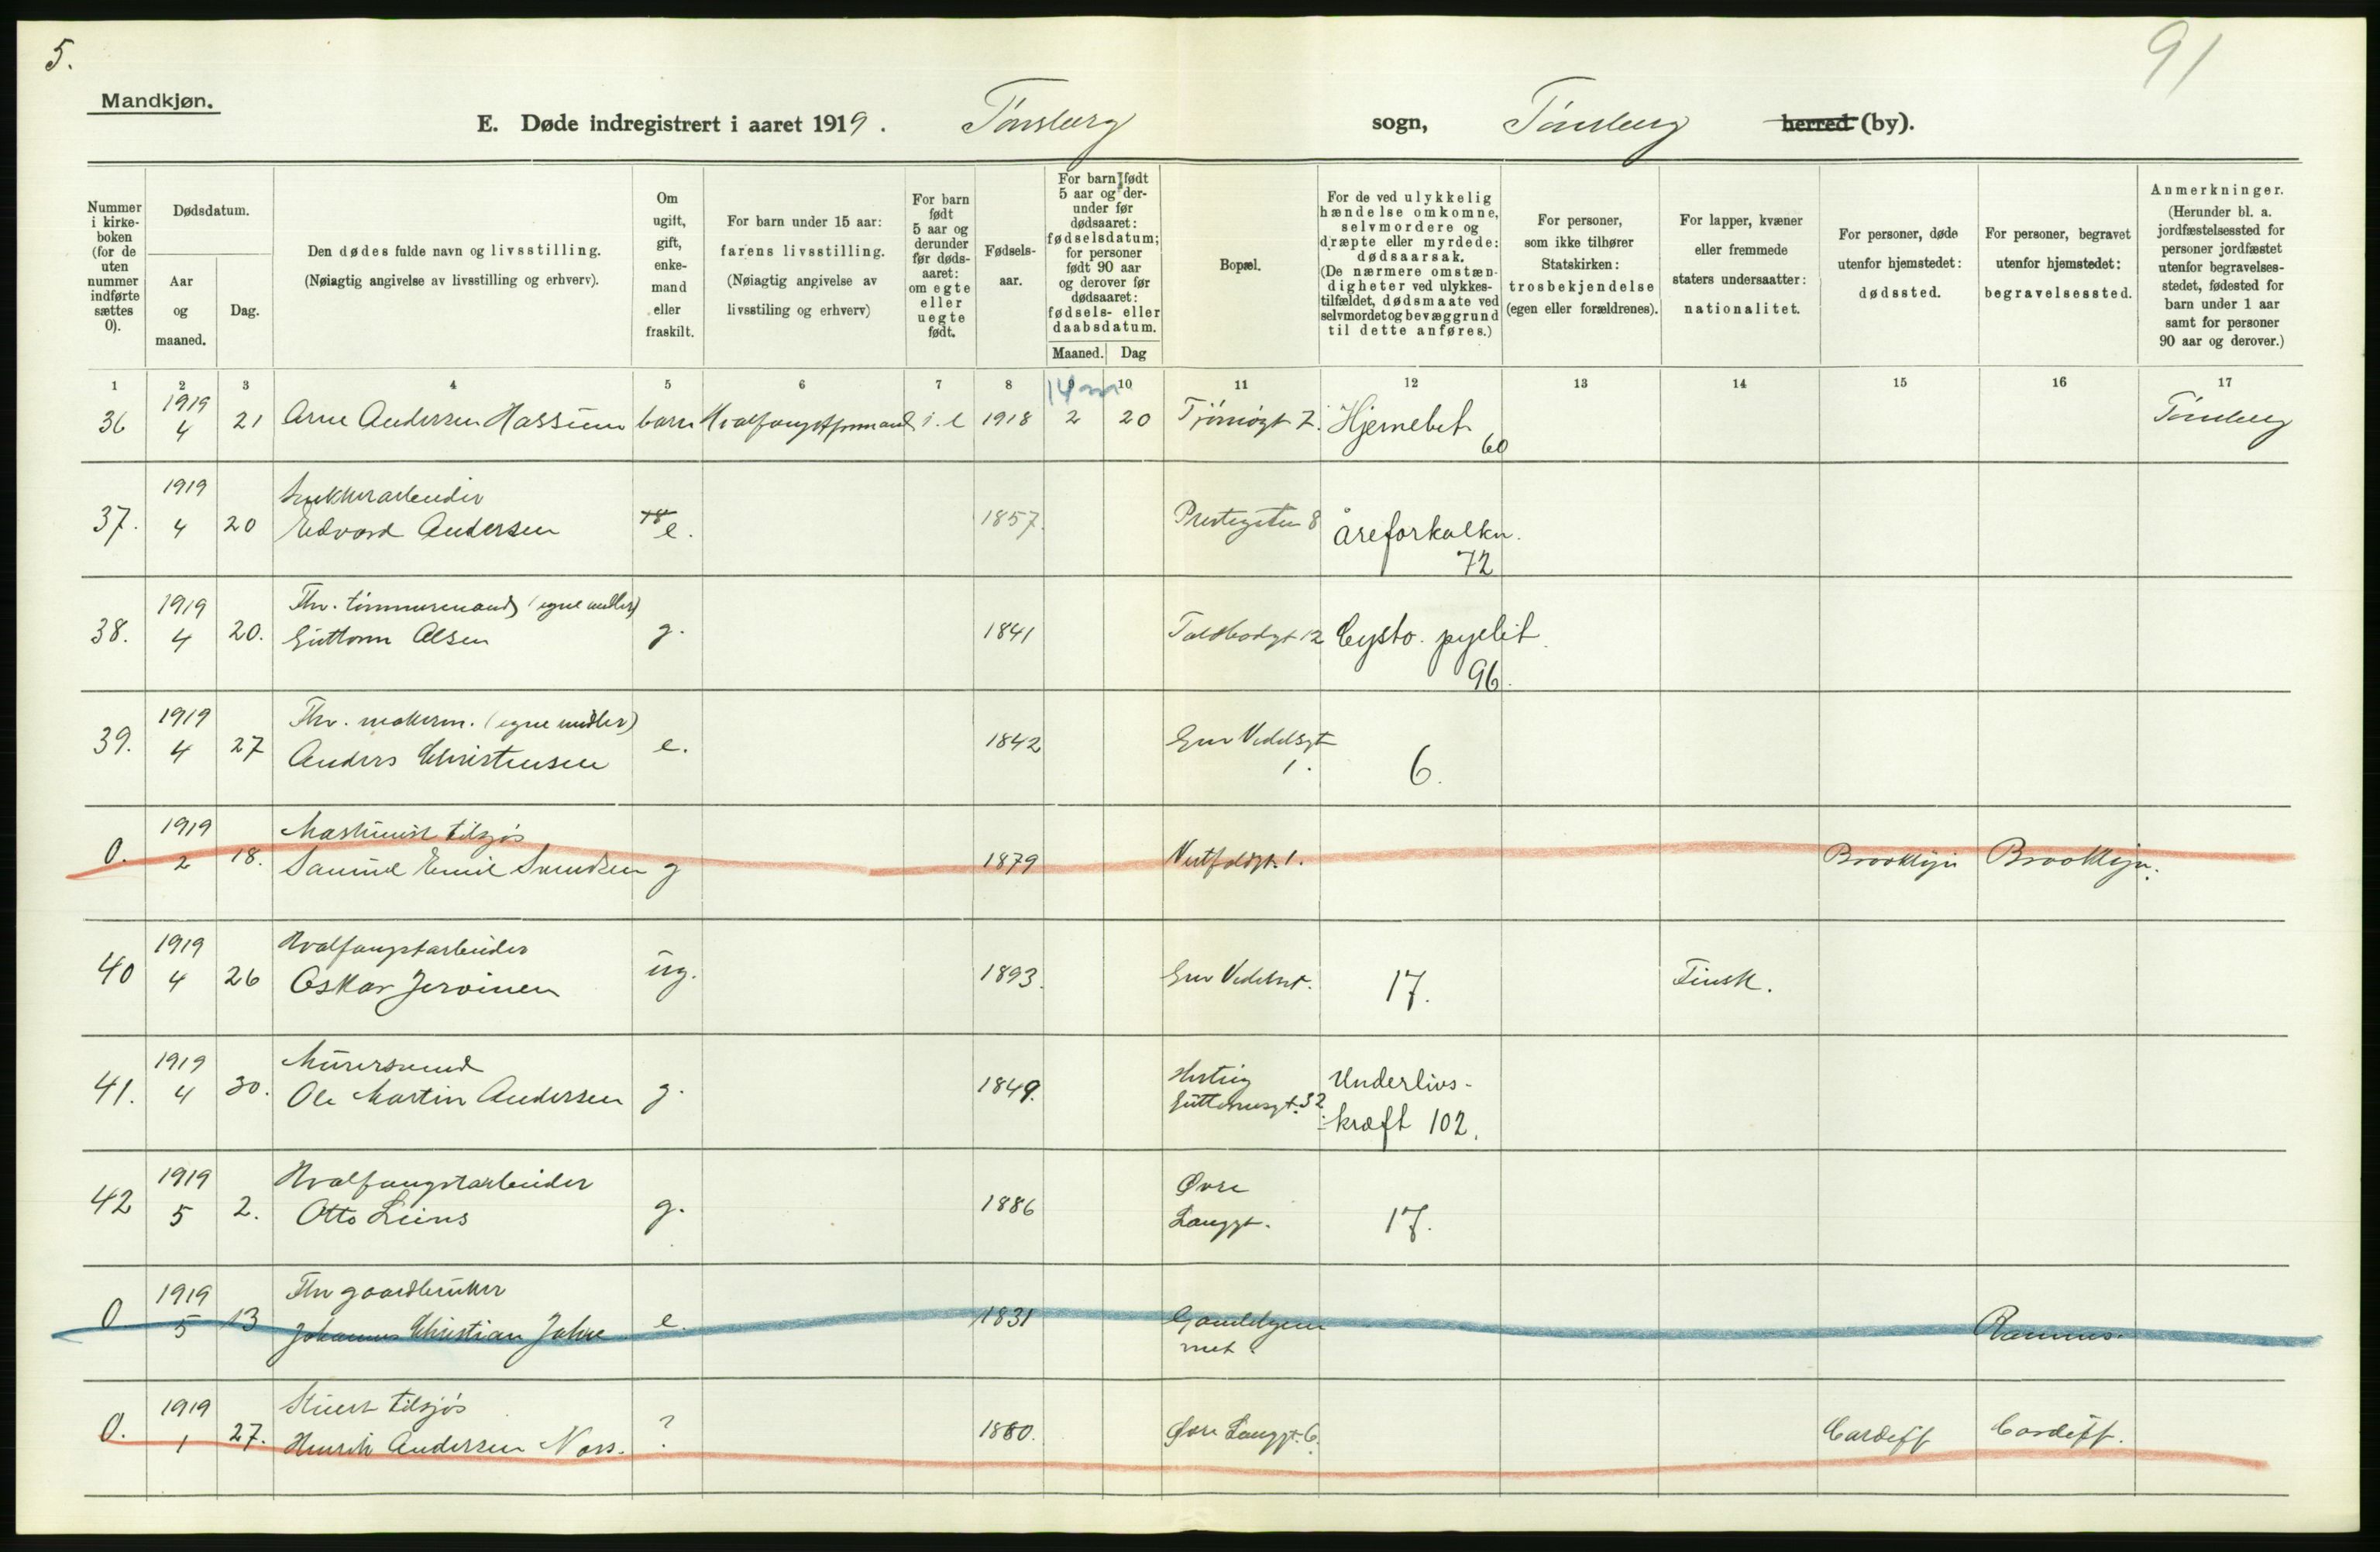 5.
91
Mandkjøn.
E. Døde indregistrert i aaret 1919. Tønsberg sogn, Tønsberg herred (by).
Nummer i kirkeboken (for de uten nummer indførte sættes 0).
Dødsdatum.
Aar og maaned.
Dag.
Den dødes fulde navn og livsstilling.
(Nøiagtig angivelse av livsstilling og erhverv).
Om ugift, gift, enkemand eller fraskilt.
For barn under 15 aar: farens livsstilling.
(Nøiagtig angivelse av livsstiling og erhverv)
For barn født 5 aar og derunder før dødsaaret: om egte eller uegte født.
Fødselsaar.
For barn født 5 aar og derunder før dødsaaret: fødselsdatum; for personer født 90 aar og derover før dødsaaret: fødsels- eller daabsdatum.
Maaned. Dag
Bopæl.
For de ved ulykkelig hændelse omkomne, selvmordere og dræpte eller myrdede: dødsaarsak.
(De nærmere omstændigheter ved ulykkestilfældet, dødsmaate ved selvmordet og bevæggrund til dette anføres.)
For personer, som ikke tilhører Statskirken: trosbekjendelse (egen eller forældrenes).
For lapper, kvæner eller fremmede staters undersaatter: nationalitet.
For personer, døde utenfor hjemstedet: dødssted.
For personer, begravet utenfor hjemstedet: begravelsessted.
Anmerkninger.
(Herunder bl. a. jordfæstelsessted for personer jordfæstet utenfor begravelsesstedet, fødested for barn under 1 aar samt for personer 90 aar og derover.)
1 2 3 4 5 6 7 8 9 10 11 12 13 14 15 16 17
14 m
36 1919 4 21 Arne Andersen Hassum barn Hvalfangstformand 1918 2 20 Hjernebet. 60 Tønsberg
37. 1919 4 20 Sukkerarbeider
Edvard Andersen e. 1857. Prestegaten 8 åreforkalkn. 72
38. 1919 4 20. Fhv. tømmermand (egne midler)
Guttorm Olsen g. 1841 Toldbodgt 12 Cysto. pyelit. 96.
39. 1919 4 27 Fhv. (egne midler)
Anders Christensen e. 1842 Grev Vedelsgt 1. 6.
0. 1919 2 18. Maskinist tilsjøs
Samuel Emil Svendsen g 1879 Vestfoldgt. 1. Brooklyn Brooklyn.
40 1919 4 26 Hvalfangstarbeider
Oskar Jervinen ug. 1893. 17. Finsk.
41. 1919 4 30. Murersvend
Ole Martin Andersen g. 1849. Hertug Guttormsgt. 32 Underlivs-kræft 102.
42 1919 5 2. Hvalfangstarbeider
Otto Leins g. 1886 Øvre Langgt. 17.
0. 1919 5 13 Fhv gaardbruker
Johannes Christian Jahre e. 1831 Gamlehjemmet. Ramnes.
0. 1919 1 27. Stuert tilsjøs
Henrik Andersen Næss. ? 1880. Øvre Langgt. 6. Cardiff Cardiff.